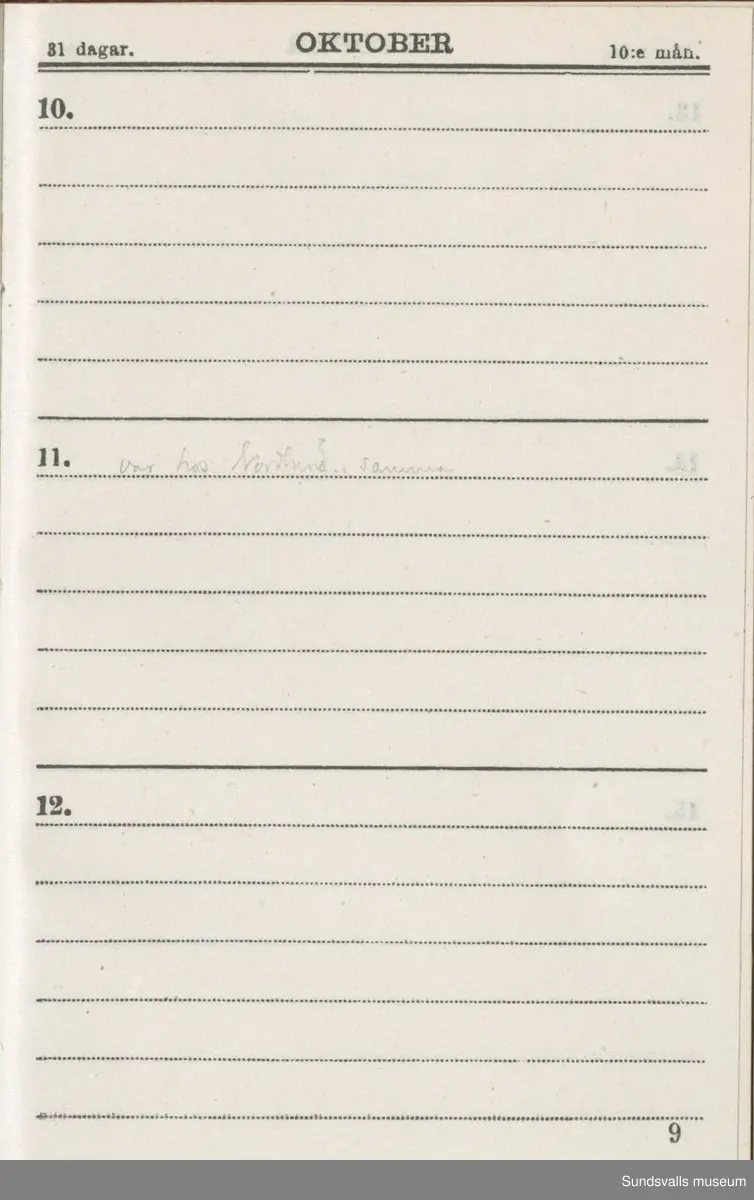 31 dagar. OKTOBER 10:e mån.
10.
11. var hos samma
12.
9
Sundsvalls museum